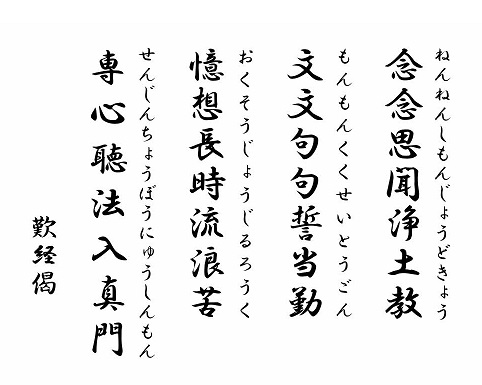 ねんねんしもんじょうどきょう
念念思聞浄土教
もんもんくくせいとうごん
文文句句誓当勤
おくそうじょうじるろうく
憶想長時流浪苦
せんじんちょうぼうにゅうしんもん
専心聴法入真門
歎経偈